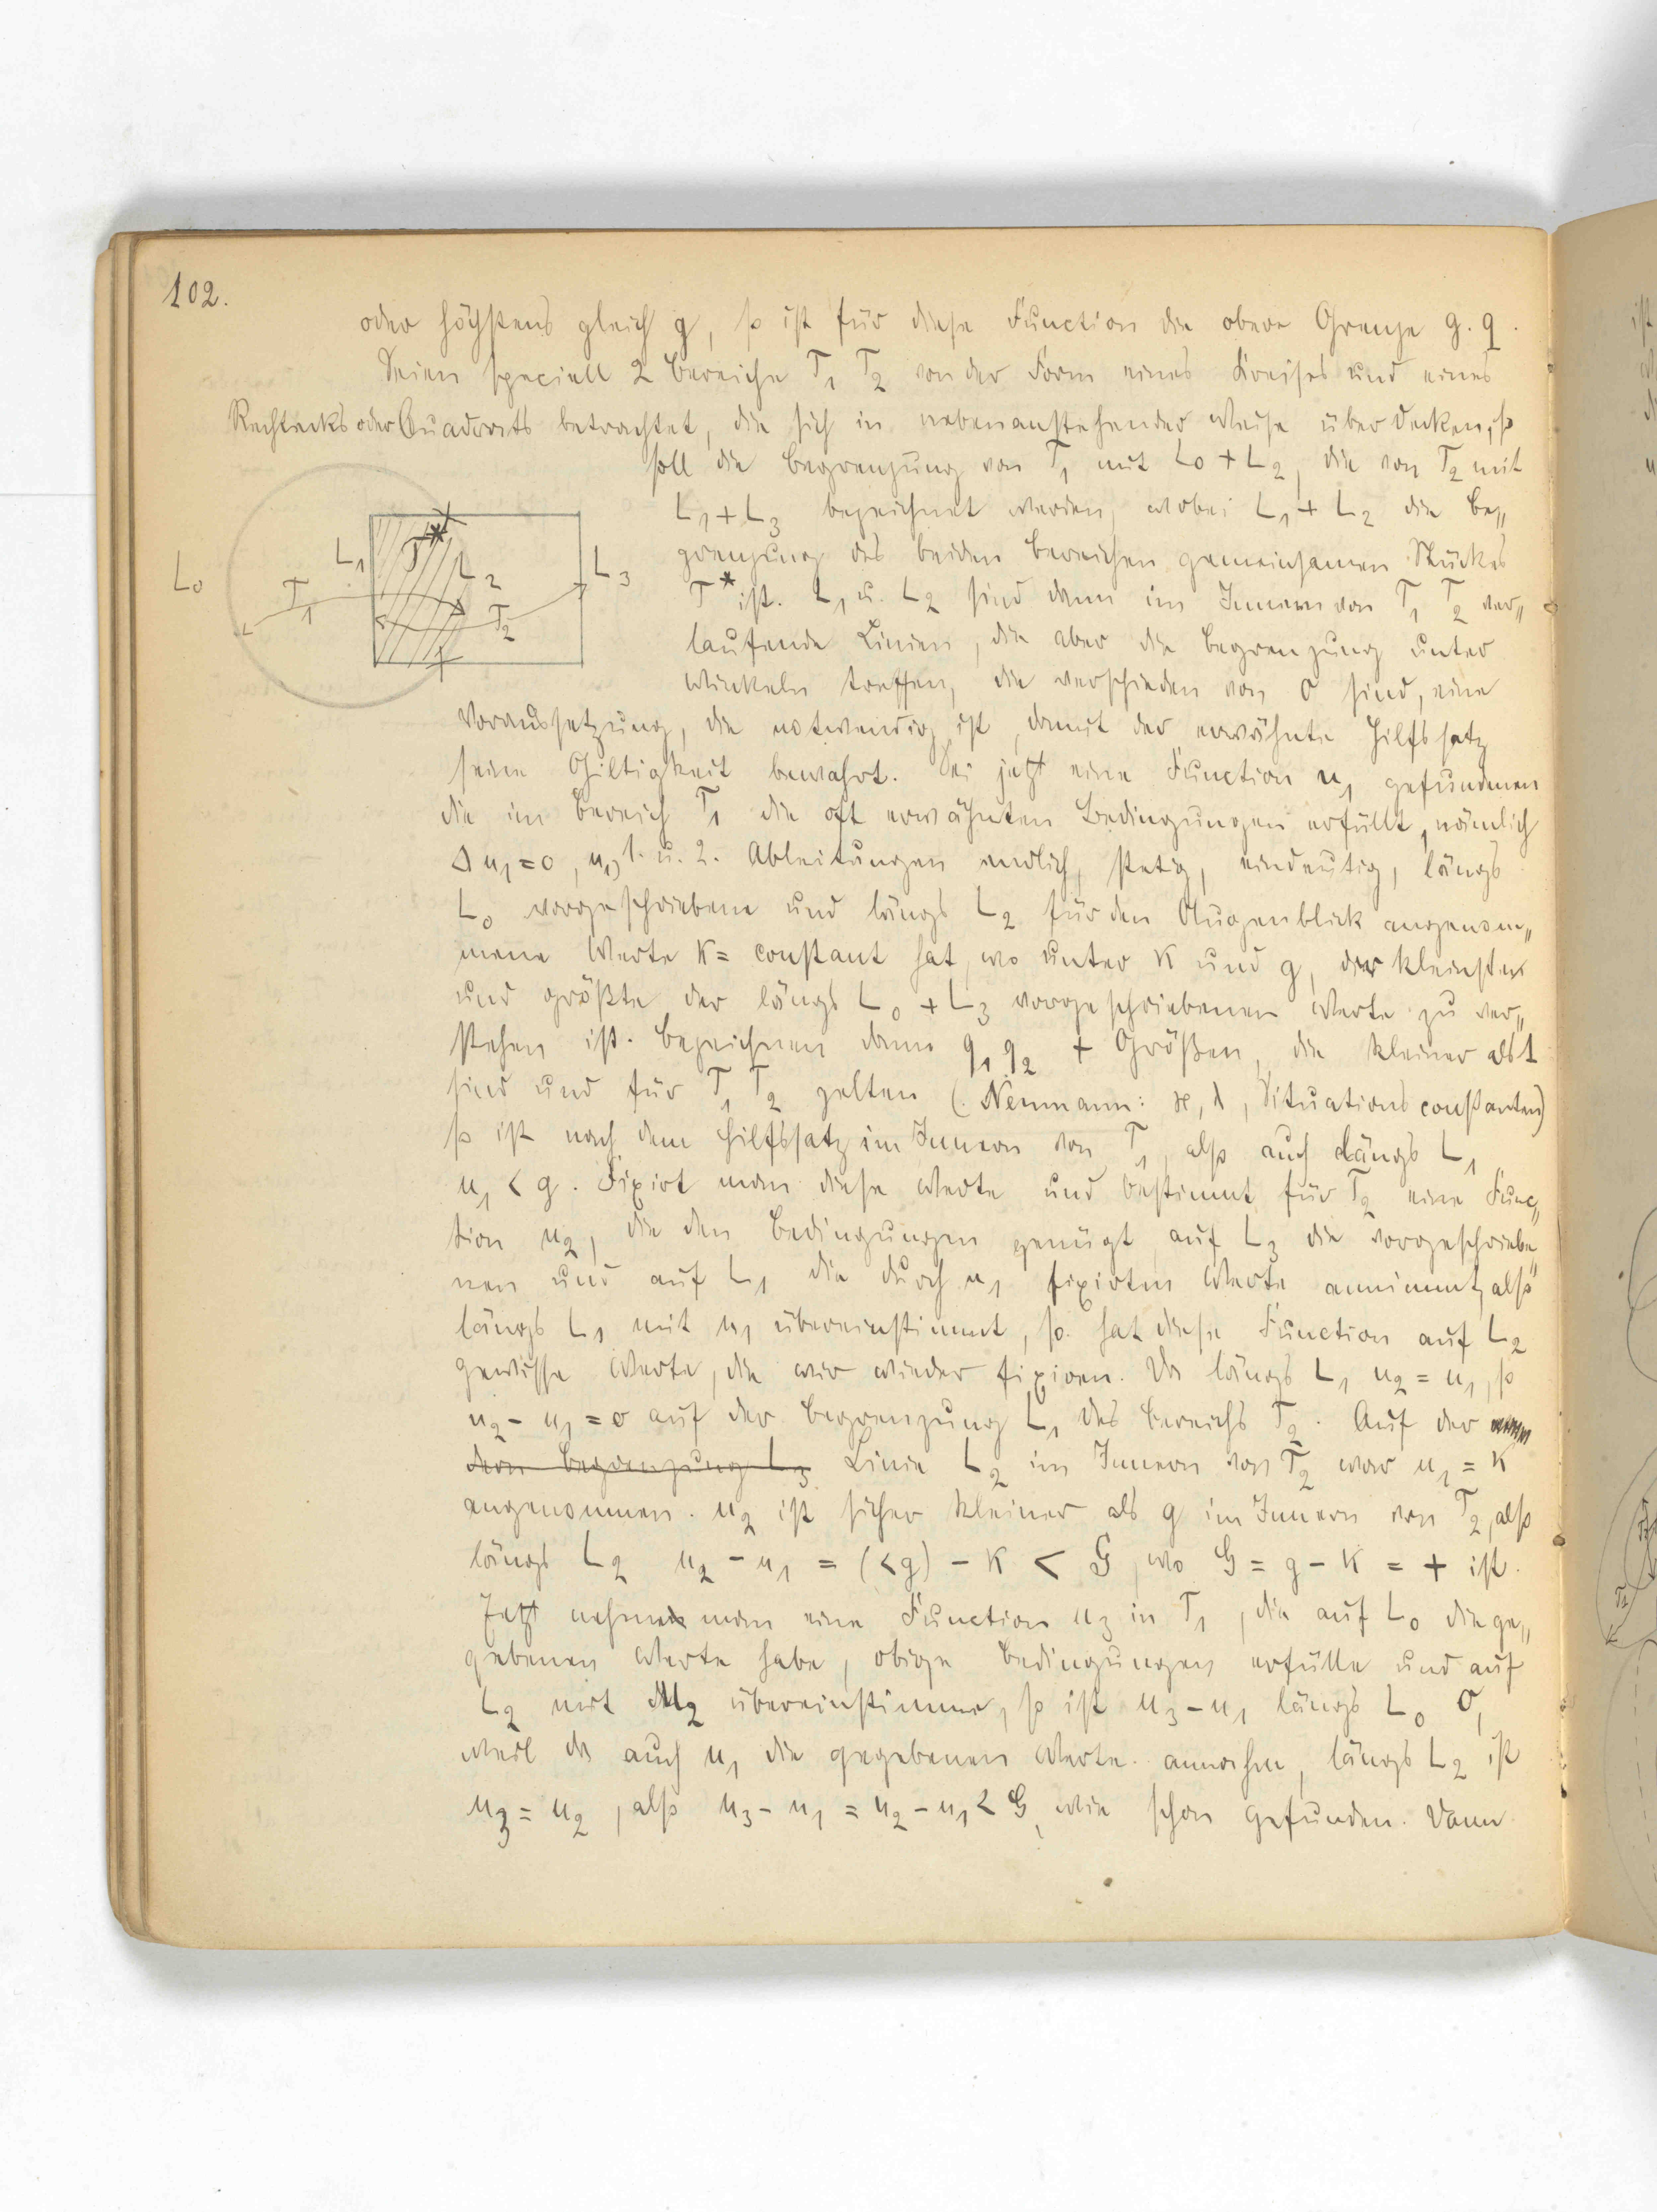 102.
oder höchstens gleich g, so ist für diese Function die obere Grenze g. q.
Seien speciell 2 Bereiche T₁ T₂ von der Form eines Kreises und eines
Rechtecks oder Quadrats betrachtet, die sich in nebenanstehender Weise überdecken, so
soll die Begrenzung von T₁ mit L₀ + L₂, die von T₂ mit
L₁ + L₃ bezeichnet werden, wobei L₁ + L₂ die Be„
grenzung des beiden Bereichen gemeinsamen Stückes
T* ist. L₁ u. L₂ sind dann im Innern von T₁ T₂ ver„
laufende Linien, die aber die Begrenzung unter
Winkeln treffen, die verschieden von 0 sind, eine
L₀
L₁
T*
L₂
L₃
T₁
T₂
Voraussetzung, die notwendig ist, damit der erwähnte Hilfssatz
seine Giltigkeit bewahrt. Sei jetzt eine Function u₁ gefundenen
die im Bereich T₁ die oft erwähnten Bedingungen erfüllt, nämlich
Δ u₁ = 0, u₁, 1. u. 2. Ableitungen endlich, stetig, eindeutig, längs
L₀ vorgeschriebene und längs L₂ für den Augenblick angenom„
mene Werte K = constant hat, wo unter K und g, der kleinste
und größte der längs L₀ + L₃ vorgeschriebenen Werte zu ver„
stehen ist. Bezeichnen dann q₁ q₂ + Größen, die kleiner als 1
sind und für T₁ T₂ gelten (. Neumann: ϰ, λ, Situationsconstanten)
so ist nach dem Hilfssatz im Innern von T₁, also auch längs L₁
u₁ < g. Fixirt man diese Werte und bestimmt für T₂ eine Func„
tion u₂, die den Bedingungen genügt, auf L₃ die vorgeschriebe„
nen und auf L₁ die durch u₁ fixirten Werte annimmt, also
längs L₁ mit u₁ übereinstimmt, so hat diese Function auf L₂
gewisse Werte, die wir wieder fixiren. Da längs L₁ u₂ = u₁, so
u₂ - u₁ = 0 auf der Begrenzung L₁ des Bereichs T₂. Auf der
dern Begrenzung L₃ Linie L₂ im Innern von T₂ war u₁ = K
angenommen. u₂ ist sicher kleiner als g im Innern von T₂, also
längs L₂ u₂ - u₁ = (<g) - K < G, wo G = g - K = + ist.
Jetzt nehme man eine Function u₃ in T₁, die auf L₀ die ge„
gebenen Werte habe, obige Bedingungen erfülle und auf
L₂ mit u₂ übereinstimme, so ist u₃ - u₁ längs L₀ 0,
weil da auch u₁ die gegebenen Werte annahm, längs L₂ ist
u₃ = u₂, also u₃ - u₁ = u₂ - u₁ < G, wie schon gefunden. Dann